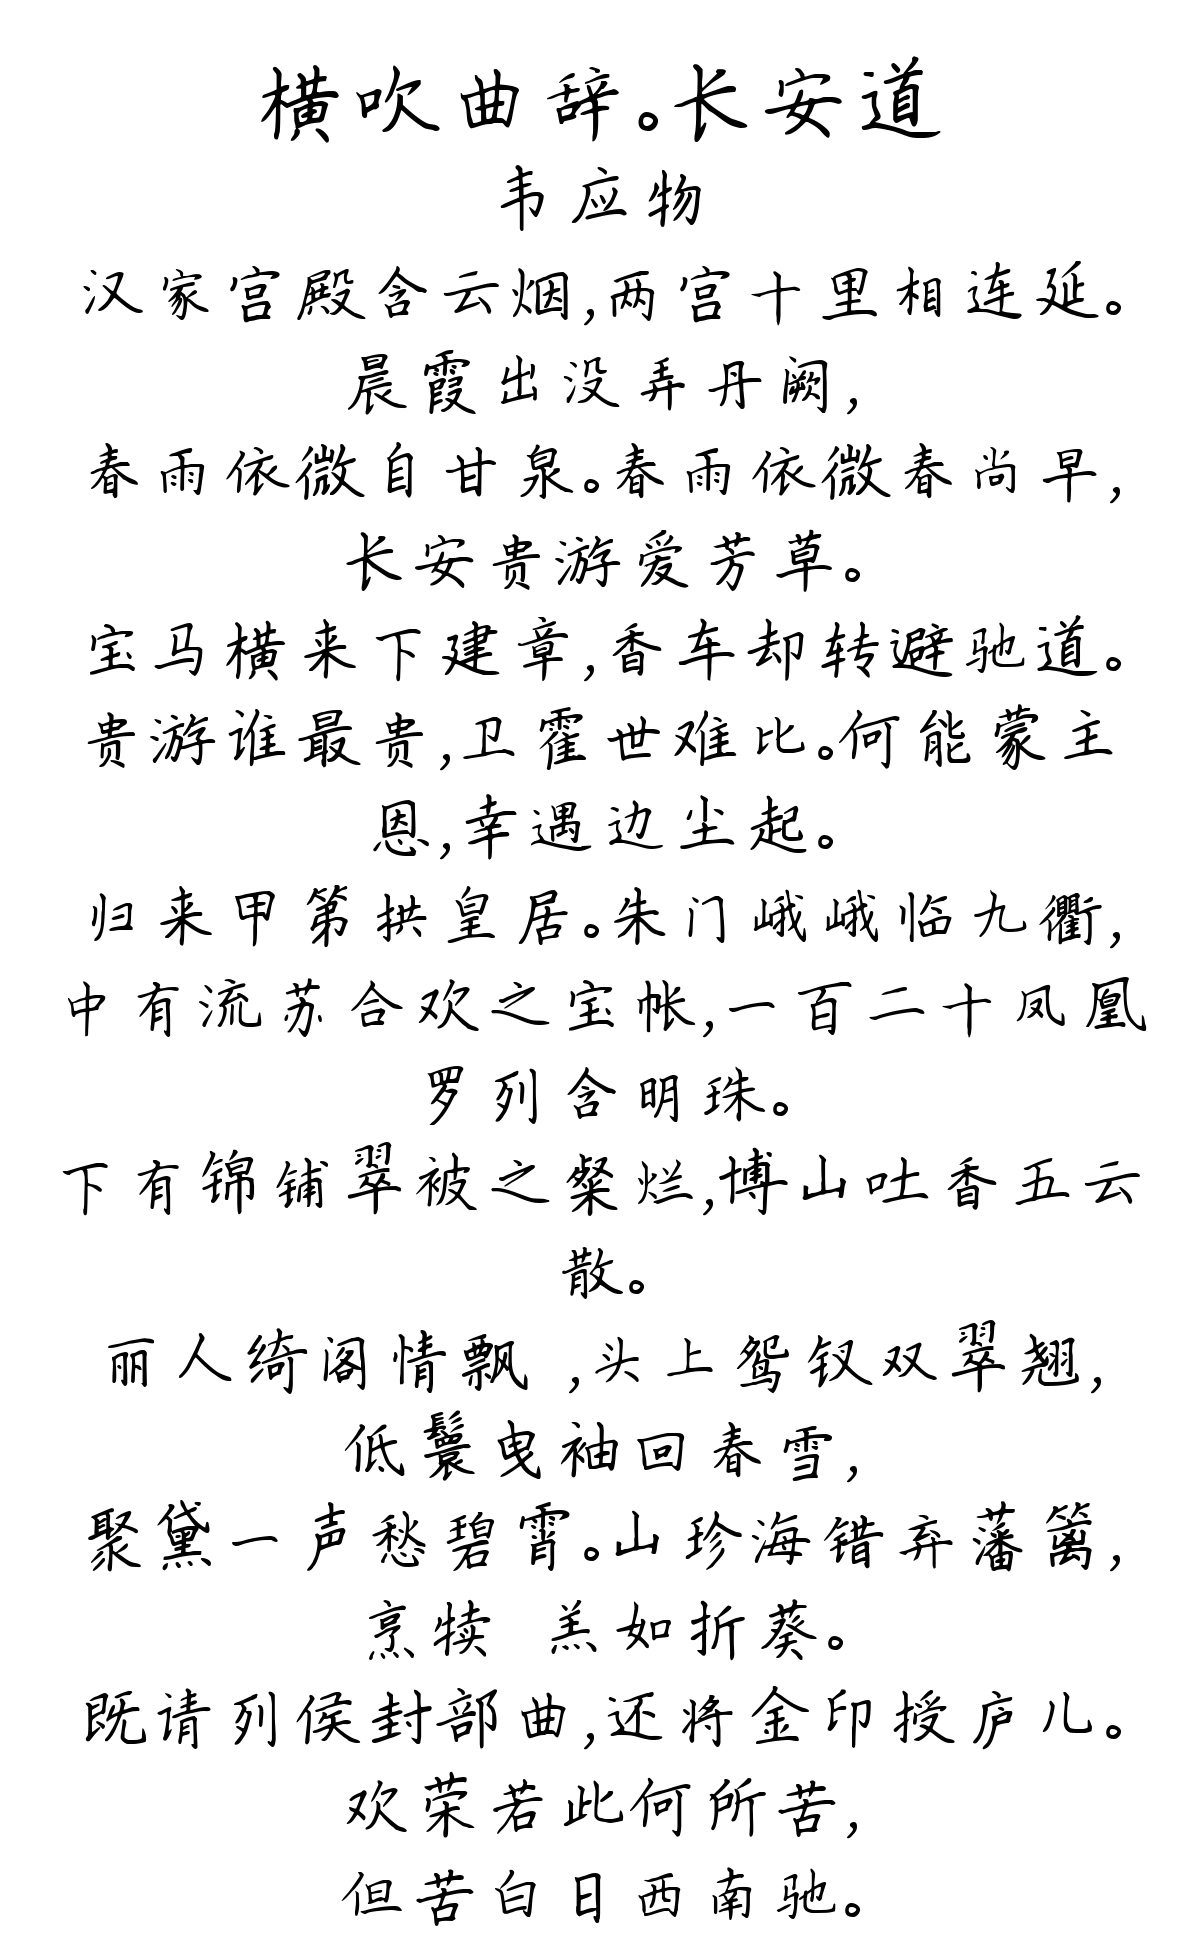 横吹曲辞。长安道
韦应物
汉家宫殿含云烟,两宫十里相连延。
晨霞出没弄丹阙,
春雨依微自甘泉。春雨依微春尚早,
长安贵游爱芳草。
宝马横来下建章,香车却转避驰道。
贵游谁最贵,卫霍世难比。何能蒙主
恩,幸遇边尘起。
归来甲第拱皇居。朱门峨峨临九衢,
中有流苏合欢之宝帐,一百二十凤凰
罗列含明珠。
下有锦铺翠被之粲烂,博山吐香五云
散。
丽人绮阁情飘 ,头上鸳钗双翠翘,
低鬟曳袖回春雪,
聚黛一声愁碧霄。山珍海错弃藩篱,
烹犊 羔如折葵。
既请列侯封部曲,还将金印授庐儿。
欢荣若此何所苦,
但苦白日西南驰。